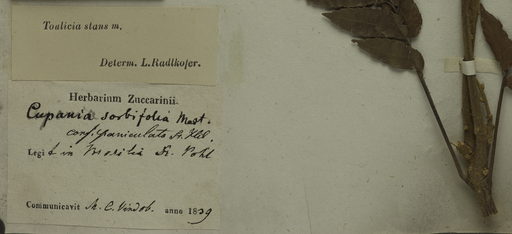 Toulicia stans m.
Determ. L. Radlkofer.
Herbarium Zuccarinii.
Cupania sorbifolia Mart.
conf. paniculata St. Hil.
Legi t in Brasilia Dr. Pohl
Communicavit M. C. Vindob. anno 1839